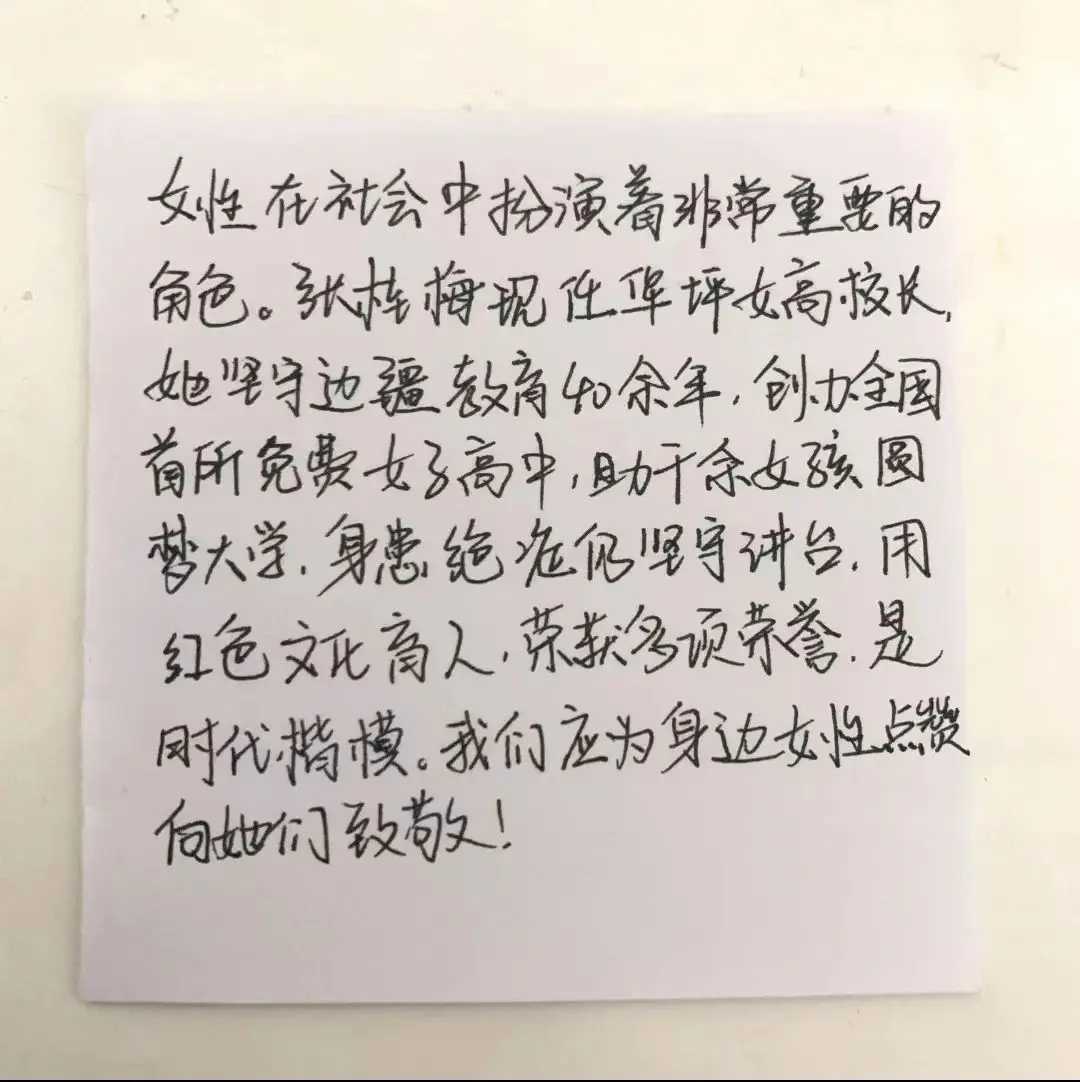 女性在社会中扮演着非常重要的
角色。张桂梅现任华坪女高校长,
她坚守边疆教育40余年,创办全国
首所免费女子高中,助千余女孩圆
梦大学,身患绝症仍坚守讲台,用
红色文化育人,荣获多项荣誉,是
时代楷模。我们应为身边女性点赞
向她们致敬!